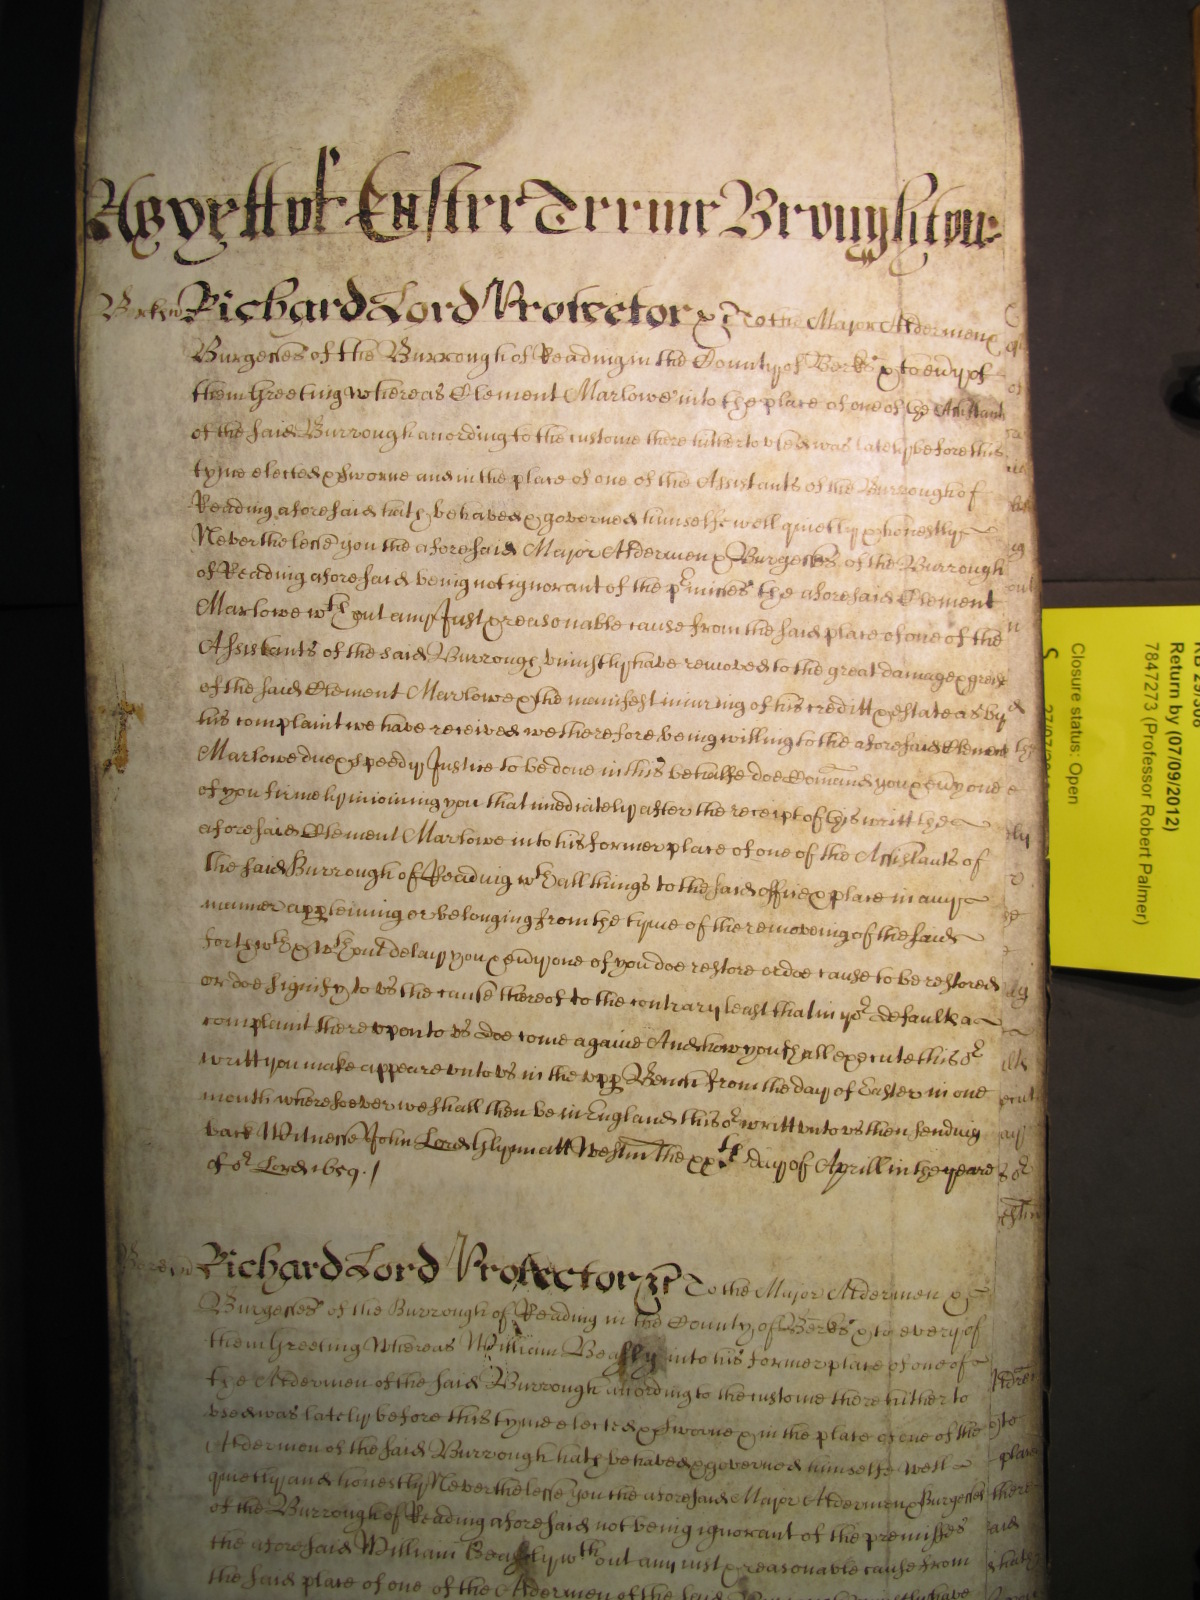 Easter Terme Broughton
Richard Lord Protector &c To the Major Aldermen &
Burgesses of the Burrough of Reading in the County of Berks & to ev'y of
them Greeting whereas Clement Marlowe into the place of one of the Assistants
of the said Burrough according to the custome there hitherto used was lately before this
tyme elected & sworne and in the place of one of the Assistants of the Burrough of
Reading aforesaid hath behaved & governed himselfe well quietly & honestly
Neverthelesse you the aforesaid Major Aldermen & Burgesses of the Burrough
of Reading aforesaid being not ignorant of the p'misses the aforesaid Clement
Marlowe wth out any Just & reasonable cause from the said place of one of the
Assistants of the said Burrough uniustly have removed to the great damage & greife
of the said Clement Marlowe & the manifest iniuring of his creditt & estate as by
his complaint we have received we therefore being willing to the aforesaid Clement
Marlowe due & speedy Justice to be done in this behalfe doe Comand you & ev'y one
of you firmely inioining you that imediately after the receipt of this writt the
aforesaid Clement Marlowe into his former place of one of the Assistants of
the said Burrough of Reading wth all things to the said office & place in any
manner app'teining or belonging from the tyme of the removeing of the said
forthwth & wthout delay you & ev'y one of you doe restore or doe cause to be restored
or doe signify to us the cause thereof to the contrary least that in yor default a
complaint thereupon to us doe come againe And how you shall execute this or
writt you make appeare unto us in the upp' Bench from the day of Easter in one
month wheresoever we shall then be in England this or writt unto us then sending
back Witnesse John Lord Glynn att Westm the xxth day of Aprill in the yeare
of or Lord 1659.
Richard Lord Protector &c To the Major Aldermen &
Burgesses of the Burrough of Reading in the County of Berks & to every of
them Greeting Whereas William into his former place of one of
the Aldermen of the said Burrough according to the custome there hitherto
used was lately before this tyme elected & sworne & in the place of one of the
Aldermen of the said Burrough hath behaved & governed himselfe well
quietly and honestly Neverthelesse you the aforesaid Major Aldermen & Burgesses
of the Burrough of Reading aforesaid not being ignorant of the premisses
the aforesaid William wth out any iust & reasonable cause from
the said place of one of the Aldermen of the said have
Closure status: Open
7847273 (Professor Robert Palmer)
Return by (07/09/2012)